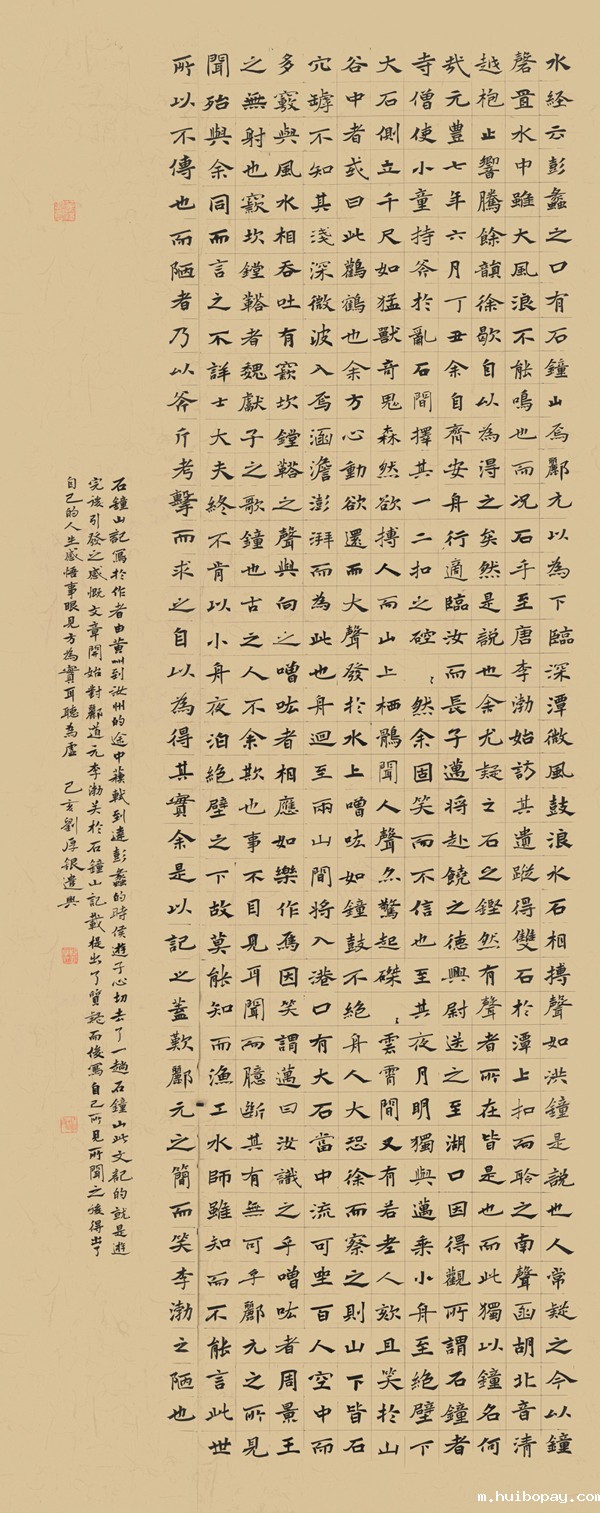 水経云彭蠡之口有石鐘山焉酈元以為下臨深潭微風鼓浪水石相搏聲如洪鐘是說也人常疑之今以鐘
磬置水中雖大風浪不能鳴也而况石乎至唐李渤始訪其遺蹤得雙石於潭上扣而聆之南聲函胡北音清
越枹止響騰餘韻徐歇自以為得之矣然是說也余尤疑之石之鏗然有聲者所在皆是也而此獨以鐘名何
哉元豊七年六月丁丑余自齊安舟行適臨汝而長子邁將赴饒之德興尉送之至湖口因得觀所謂石鐘者
寺僧使小童持斧於亂石間擇其一二扣之硿〻然余固笑而不信也至其夜月明獨與邁乘小舟至絕壁下
大石側立千尺如猛獸奇鬼森然欲搏人而山上栖鶻聞人聲亦驚起磔〻雲霄間又有若老人欬且笑於山
谷中者或曰此鸛鶴也余方心動欲還而大聲發於水上噌吰如鐘鼓不絕舟人大恐徐而察之則山下皆石
穴罅不知其淺深微波入焉涵澹澎湃而為此也舟迴至兩山間將入港口有大石當中流可坐百人空中而
多竅與風水相吞吐有窾坎鏜鞳之聲與向之噌吰者相應如樂作焉因笑謂邁曰汝識之乎噌吰者周景王
之無射也窾坎鏜鞳者魏獻子之歌鐘也古之人不余欺也事不目見耳聞而臆斷其有無可乎酈元之所見
聞殆與余同而言之不詳士大夫終不肯以小舟夜泊絕壁之下故莫能知而漁工水師雖知而不能言此世
所以不傳也而陋者乃以斧斤考擊而求之自以為得其實余是以記之蓋歎酈元之簡而笑李渤之陋也
石鐘山記寫於作者由黃州到汝州的途中蘇軾到達彭蠡的時侯遊子心切去了一趟石鐘山此文記的就是遊
完後引發之感慨文章開始對酈道元李渤关於石鐘山記載提出了質疑而後寫自己所見所聞之後得出了
自己的人生感悟事眼見方為實耳聽為虛 己亥劉厚銀遣興
m.huibopay.com